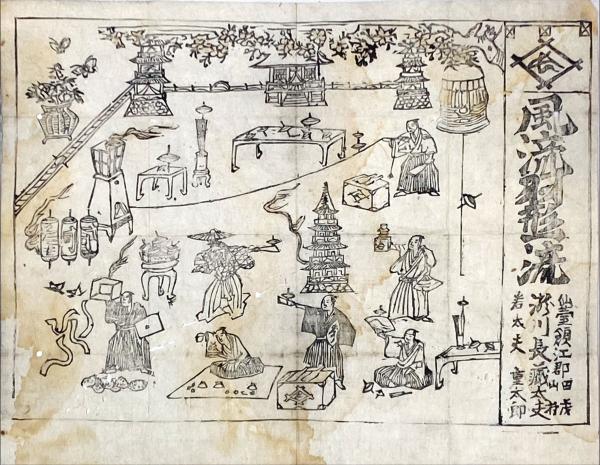 風流流
仙臺領江郡田茂山村
川長藏太夫
若太夫 重太郎